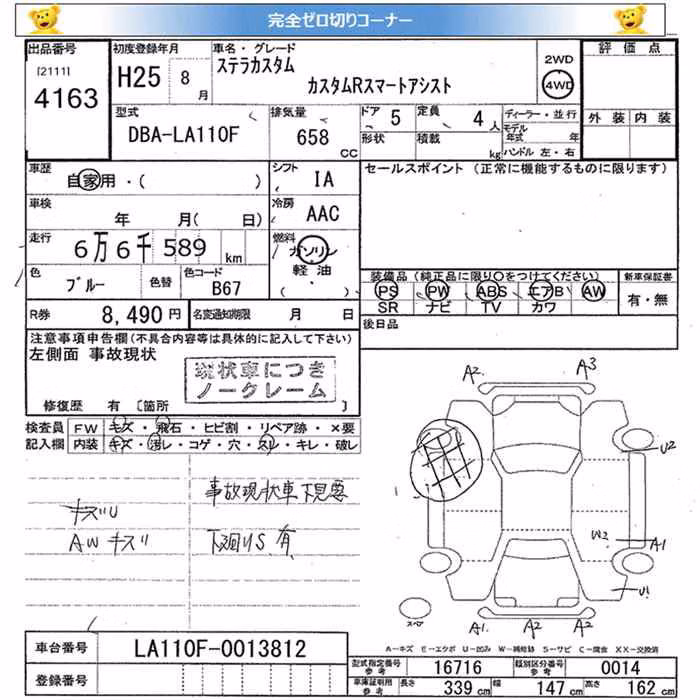 完全ゼロ切りコーナー
出品番号
[2111]
4163
初度登録年月
H25 8月
車名・グレード
ステラカスタム
カスタムRスマートアシスト
2WD
4WD
評価点
外装 内装
型式
DBA-LA110F
排気量
658 CC
ドア 5
定員 4人
形状
積載 kg
ディーラー・並行
モデル年式 年
ハンドル 左・右
車歴
自家用・( )
シフト IA
セールスポイント (正常に機能するものに限ります)
車検
年 月( 日)
冷房 AAC
走行
6万6千589 km
燃料
ガソリン
軽油
( )
色
ブルー
色替
色コード
B67
装備品(純正品に限り○をつけてください)
PS PW ABS エアB AW
SR ナビ TV カワ
新車保証書
有・無
R券 8,490円
名変通知期限 月 日
後日品
注意事項申告欄(不具合内容等は具体的に記入して下さい)
左側面 事故現状
現状車につき
ノークレーム
修復歴 有 [箇所 ]
検査員 FW キズ・飛石・ヒビ割・リペア跡・×要
記入欄 内装 キズ・汚レ・コゲ・穴・スレ・キレ・破レ
事故現状車下見要
キズU
AWキズ
下廻りS有
A2 A3
U2
1
W2 A1
U1
A1 A2 A2
スペア
A-キズ E-エクボ U-凹み W-補修跡 S-サビ C-腐食 XX-交換済
車台番号 LA110F-0013812
登録番号
型式指定番号 参考 16716
類別区分番号 参考 0014
車庫証明用 参考 長さ 339 cm 幅 147 cm 高さ 162 cm